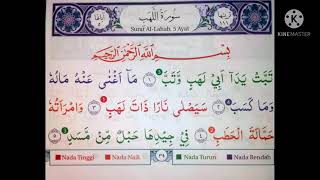 سُورَةُ اللَّهَبِ
Surat Al-Lahab: 5 Ayat
KINEMASTER
بِسْمِ اللَّهِ الرَّحْمَٰنِ الرَّحِيمِ
تَبَّتْ يَدَآ أَبِي لَهَبٍ وَتَبَّ ١ مَآ أَغْنَىٰ عَنْهُ مَالُهُ
وَمَا كَسَبَ ٢ سَيَصْلَىٰ نَارًا ذَاتَ لَهَبٍ ٣ وَامْرَأَتُهُ
حَمَّالَةَ الْحَطَبِ ٤ فِي جِيدِهَا حَبْلٌ مِّن مَّسَدٍ ٥
Nada Tinggi Nada Naik ٣٩ Nada Turun Nada Rendah